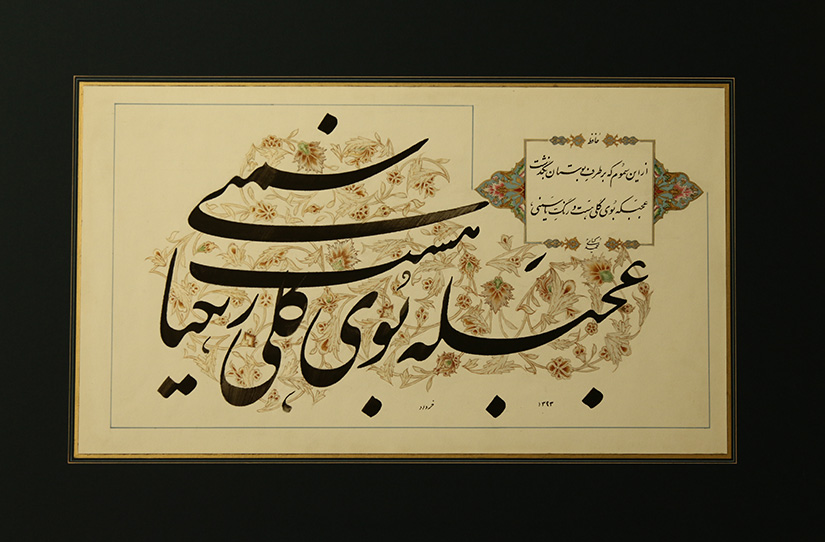 حافظ
از این سموم که بر طرف بوستان بگذشت
عجبکه بوی گلی هست و رنگ یاسمنی
عجبکه بوی گلی هست و رنگ یاسمنی
۱۳۹۳